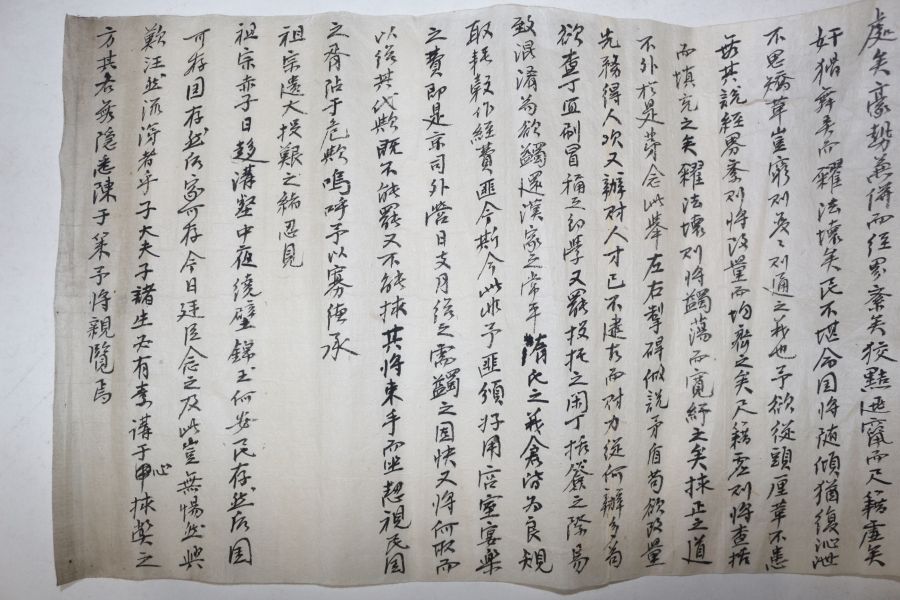 處矣豪勢兼倂而經界紊矣狡黠逃竄而尺籍虛矣
奸猾舞弄而糴法壞矣民不堪命國將隨傾猶復泄泄
不思矯革豈窮則變々則通之義也予欲從頭釐革不患
無其說經界紊則將改量而均齊之矣尺籍虛則將查括
而塡充之矣糴法壞則將蠲蕩而寬紓之矣捄正之道
不外於是等念此擧左右掣碍做說矛盾苟欲改量
先務得人次又辦財人才已不逮古而財力從何辦多苟
欲查丁宜刷冒稱之幼學又罷投托之閑丁括簽之際易
致混淆苟欲蠲還漢家之常平隋氏之義倉皆爲良規
取耗穀作經費匪今斯今此非予匪頒好用宮室宴樂
之費卽是京司外營日支月給之需蠲之固快又將何取而
以給其代歟旣不能罷又不能捄其將束手而坐恝視民國
之胥阽于危歟嗚呼予以寡德承
祖宗遺大投艱之緖忍見
祖宗赤子日趍溝壑中夜繞壁錦玉何安民存然后國
可存國存然后家可存今日廷臣念之及此豈無惕然興
歎汪然流涕者乎子大夫子諸生必有素講于中心捄弊之
方其各無隱悉陳于策予將親覽焉